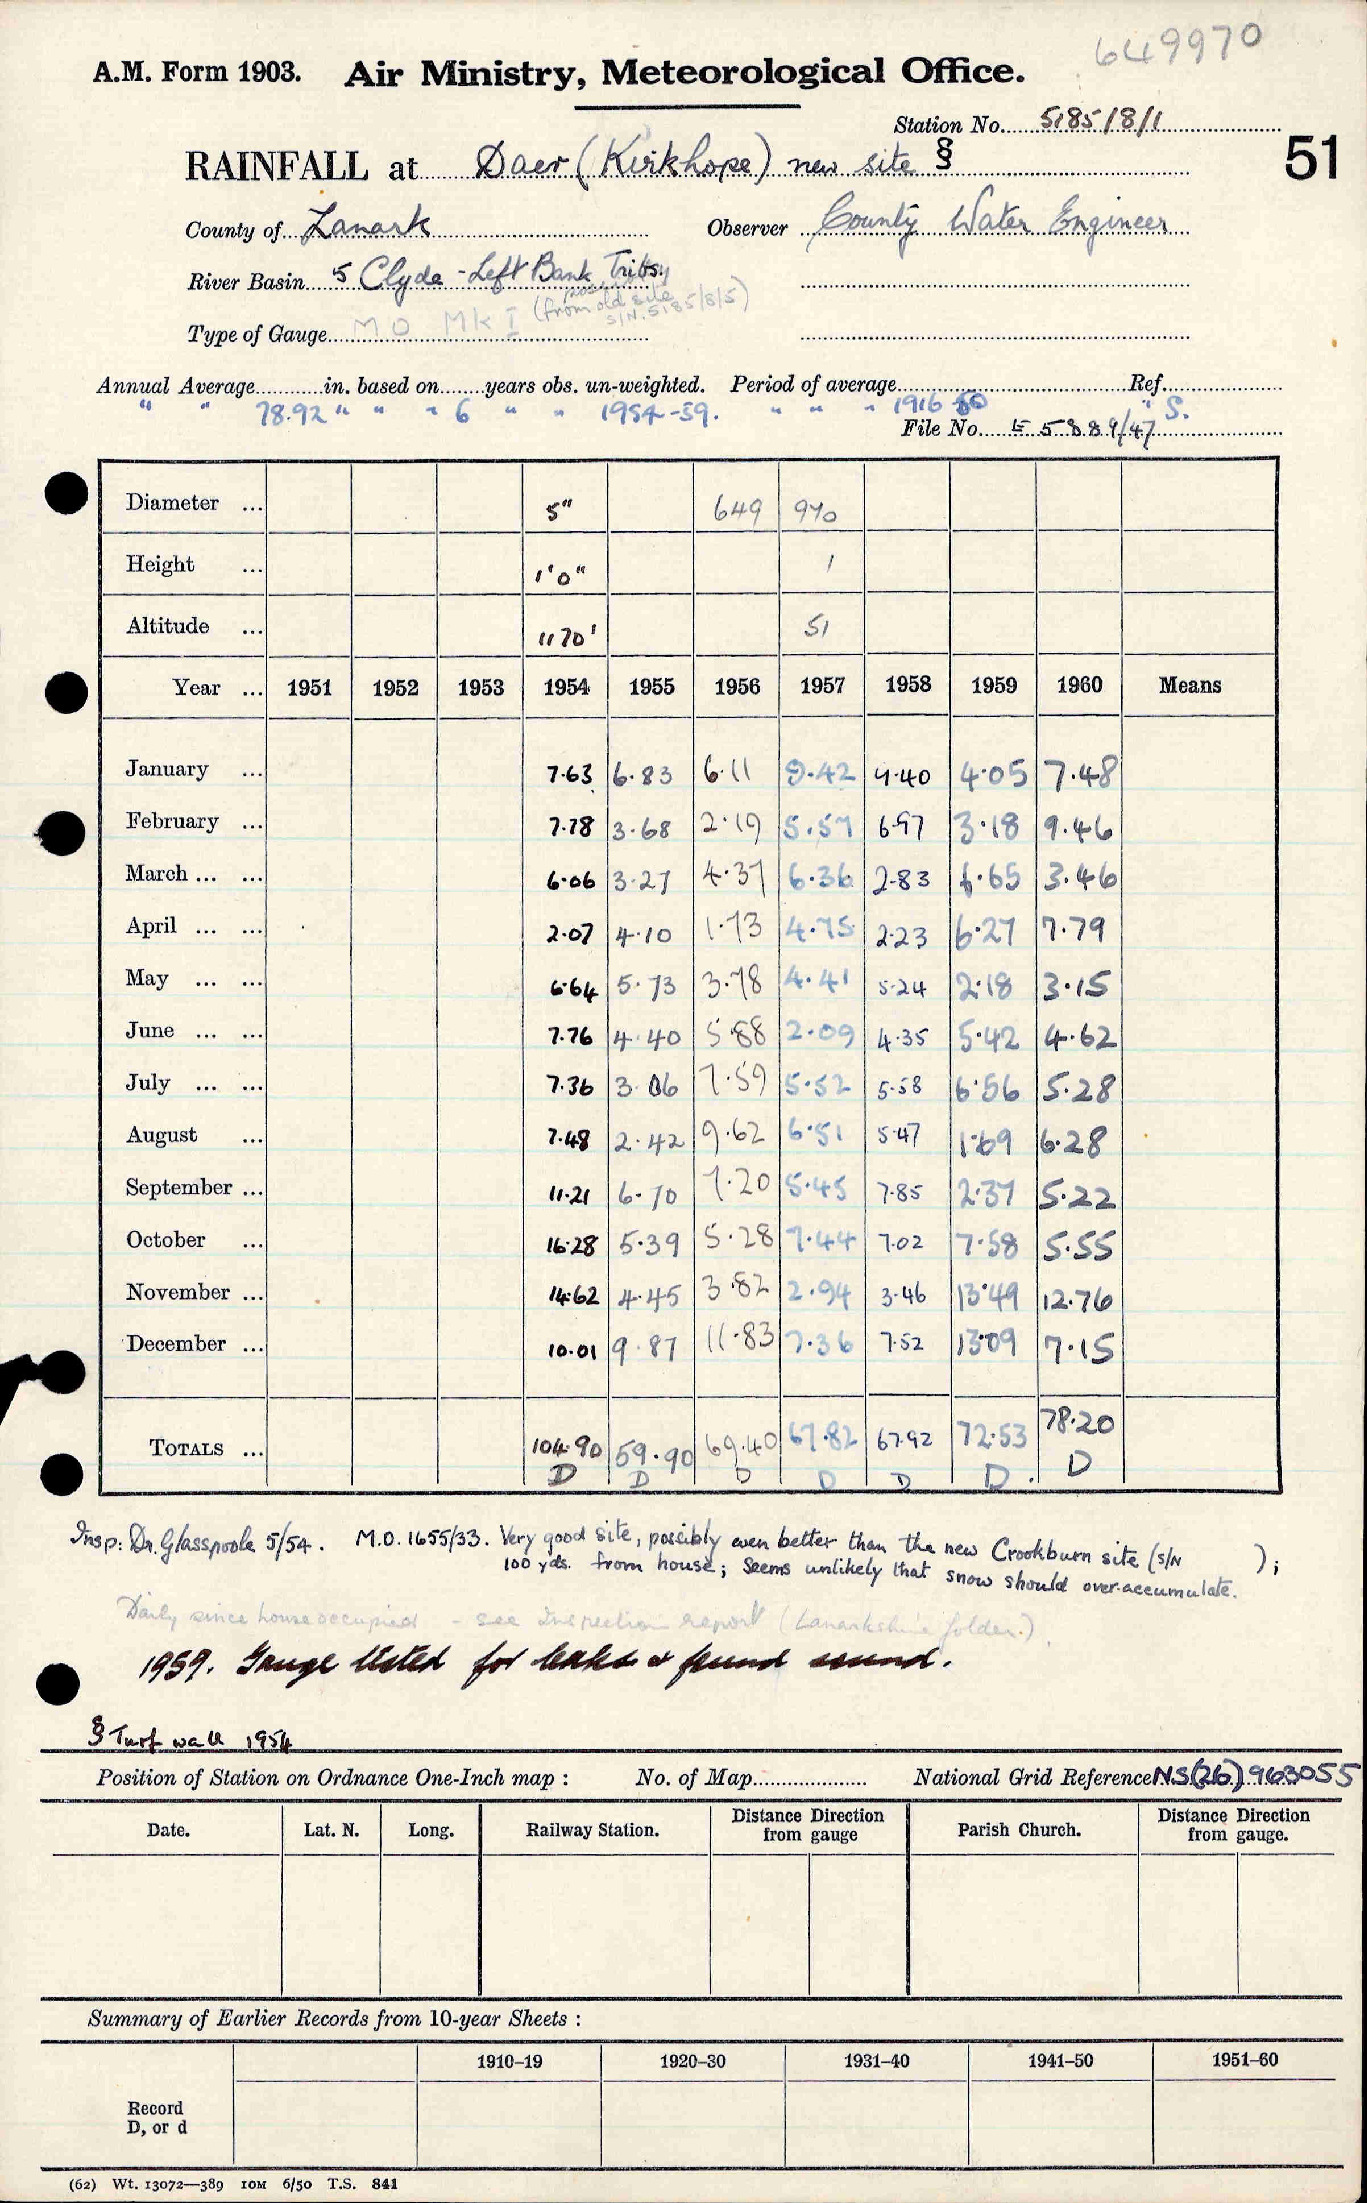 649970
A.M. Form 1903. Air Ministry, Meteorological Office.
Station No. 5185/8/1
51
RAINFALL at Daer (Kirkhope) new site §
County of Lanark Observer County Water Engineer
River Basin 5 Clyde - Left Bank Tribs.
(from old site
S/N. 5185/8/5)
Type of Gauge MO Mk I
Annual Average in. based on years obs. un-weighted. Period of average Ref.
" " 78.92 " " " 6 " " 1954-59. " " " 1916-50 " S.
File No. E 5889/47
Diameter ... 5" 649 970
Height ... 1'0" 1
Altitude ... 1170' 51
Year ... 1951 1952 1953 1954 1955 1956 1957 1958 1959 1960 Means
January ... 7.63 6.83 6.11 9.42 9.40 4.05 7.48
February ... 7.78 3.68 2.19 5.57 6.97 3.18 9.46
March ... ... 6.06 3.27 4.37 6.36 2.83 6.65 3.46
April ... ... 2.07 4.10 1.73 4.75 2.23 6.27 7.79
May ... ... 6.64 5.73 3.78 4.41 5.24 2.18 3.15
June ... ... 7.76 4.40 5.88 2.09 4.35 5.42 4.62
July ... ... 7.36 3.06 7.59 5.52 5.58 6.56 5.28
August ... 7.48 2.42 9.62 6.51 5.47 1.69 6.28
September ... 11.21 6.70 7.20 5.45 7.85 2.37 5.22
October ... 16.28 5.39 5.28 7.44 7.02 7.58 5.55
November ... 14.62 4.45 3.82 2.94 3.46 13.49 12.76
December ... 10.01 9.87 11.83 7.36 7.52 13.09 7.15
TOTALS ... 104.90 59.90 69.40 67.82 67.92 72.53 78.20
D D D D D D D
Insp: Dr. Glasspoole 5/54. M.O. 1655/33. Very good site, possibly even better than the new Crookburn site (S/N );
100 yds. from house; Seems unlikely that snow should over-accumulate.
Daily since house occupied - see Inspection report (Lanarkshire folder.).
1959. Gauge tested for leaks & found sound.
§ Turf wall 1954
Position of Station on Ordnance One-Inch map : No. of Map National Grid Reference NS(26) 963055
Date. Lat. N. Long. Railway Station. Distance Direction from gauge Parish Church. Distance Direction from gauge.
Summary of Earlier Records from 10-year Sheets :
1910–19 1920–30 1931–40 1941–50 1951–60
Record
D, or d
(62) Wt. 13072—389 10M 6/50 T.S. 841